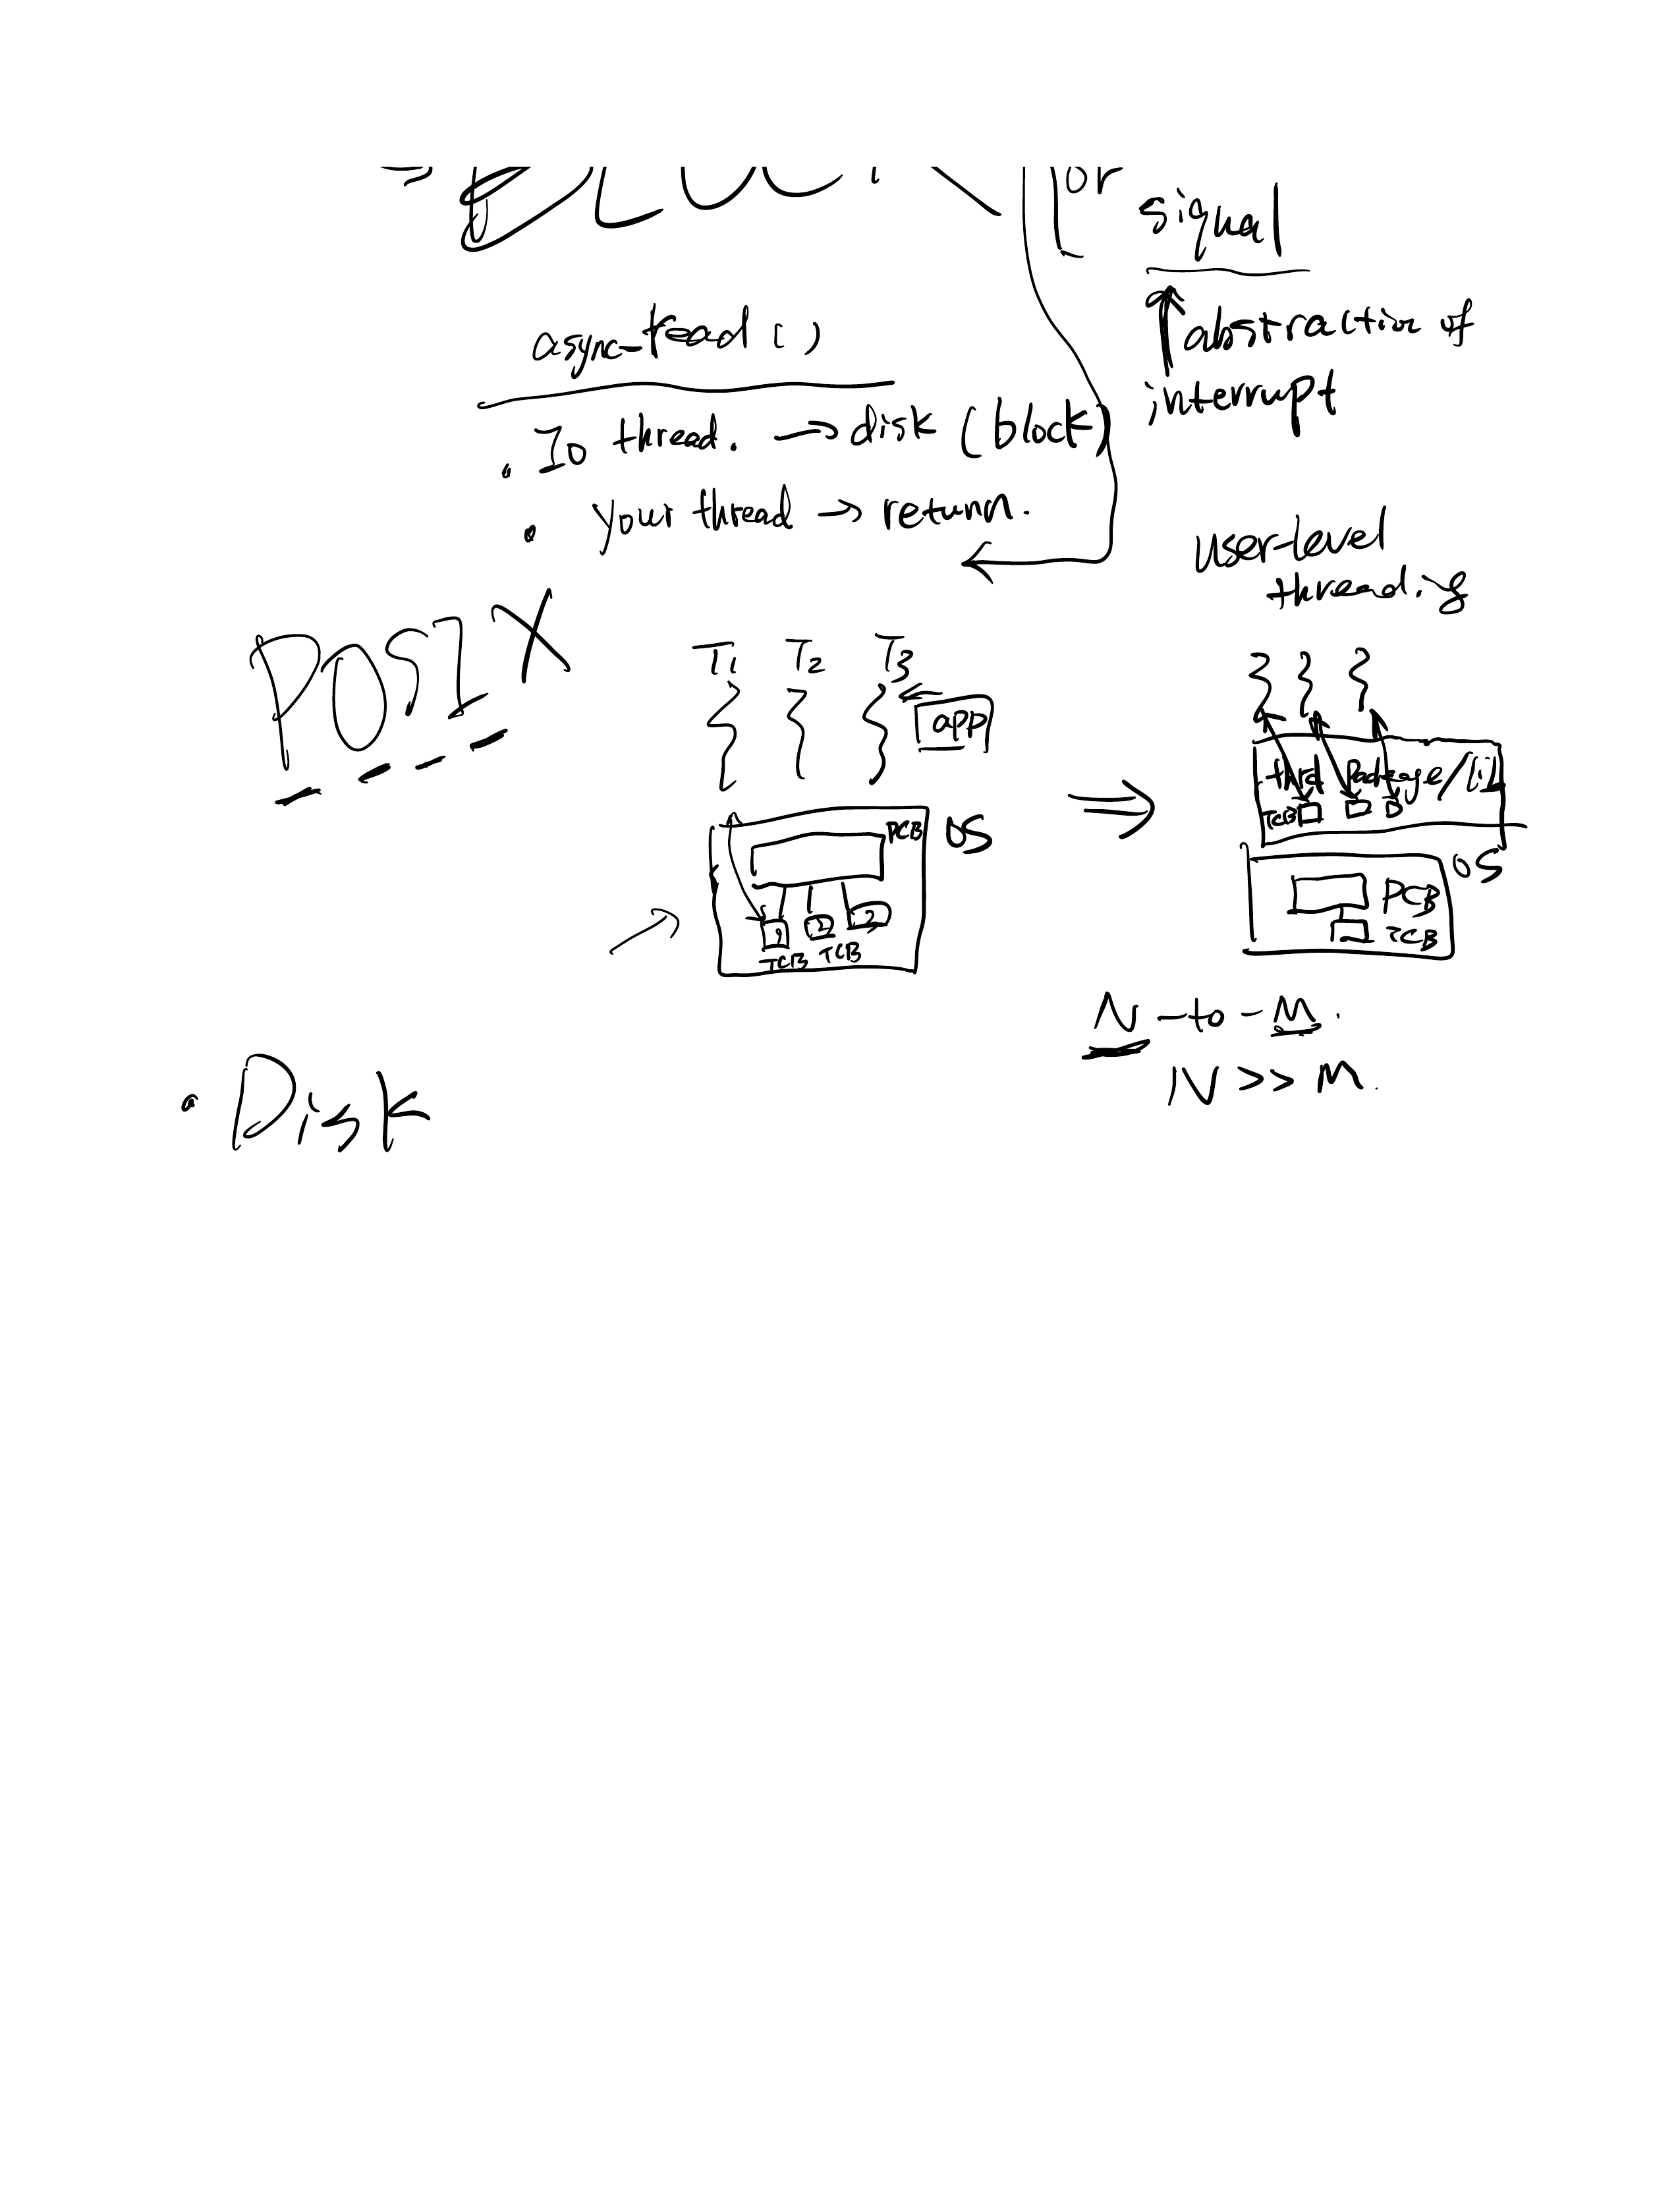 or
signal
abstraction of
interrupt
async-read()
. Io thread. → disk (block)
. Your thread → return.
POSIX
T1 T2 T3
app
PCB
OS
1 2 2
TCB TCB
User-level
threading
thrd Package/lib
TCB
OS
PCB
TCB
N-to-M.
N >> M.
. Disk